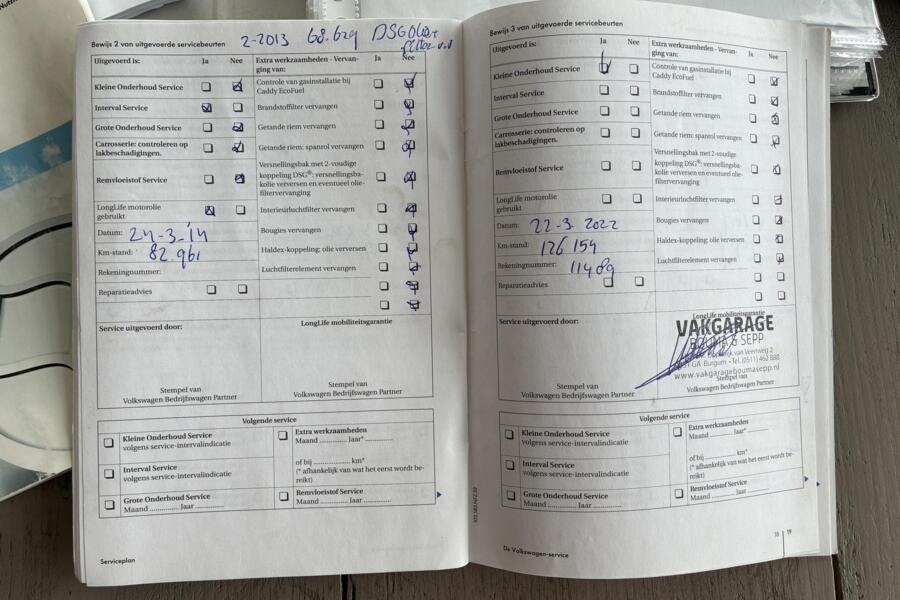 2-2013 68.629 DSG olie+
filter v.v
Bewijs 2 van uitgevoerde servicebeurten
Uitgevoerd is: Ja Nee
Kleine Onderhoud Service
Interval Service
Grote Onderhoud Service
Carrosserie: controleren op
lakbeschadigingen.
Remvloeistof Service
LongLife motorolie
gebruikt
Datum: 24-3-'14
Km-stand: 82.961
Rekeningnummer:
Reparatieadvies
Extra werkzaamheden - Vervan-
ging van: Ja Nee
Controle van gasinstallatie bij
Caddy EcoFuel
Brandstoffilter vervangen
Getande riem vervangen
Getande riem: spanrol vervangen
Versnellingsbak met 2-voudige
koppeling DSG®: versnellingsba-
kolie verversen en eventueel olie-
filtervervanging
Interieurluchtfilter vervangen
Bougies vervangen
Haldex-koppeling: olie verversen
Luchtfilterelement vervangen
Service uitgevoerd door:
Stempel van
Volkswagen Bedrijfswagen Partner
LongLife mobiliteitsgarantie
Stempel van
Volkswagen Bedrijfswagen Partner
Volgende service
Kleine Onderhoud Service
volgens service-intervalindicatie
Interval Service
volgens service-intervalindicatie
Grote Onderhoud Service
Maand .............. Jaar ..............
Extra werkzaamheden
Maand ............. Jaar* .............
of bij .................. km*
(* afhankelijk van wat het eerst wordt be-
reikt)
Remvloeistof Service
Maand ............. Jaar .............
Serviceplan
Bewijs 3 van uitgevoerde servicebeurten
Uitgevoerd is: Ja Nee
Kleine Onderhoud Service
Interval Service
Grote Onderhoud Service
Carrosserie: controleren op
lakbeschadigingen.
Remvloeistof Service
LongLife motorolie
gebruikt
Datum: 22-3. 2022
Km-stand: 126 154
Rekeningnummer: 11489
Reparatieadvies
Extra werkzaamheden - Vervan-
ging van: Ja Nee
Controle van gasinstallatie bij
Caddy EcoFuel
Brandstoffilter vervangen
Getande riem vervangen
Getande riem: spanrol vervangen
Versnellingsbak met 2-voudige
koppeling DSG®: versnellingsba-
kolie verversen en eventueel olie-
filtervervanging
Interieurluchtfilter vervangen
Bougies vervangen
Haldex-koppeling: olie verversen
Luchtfilterelement vervangen
Service uitgevoerd door:
Stempel van
Volkswagen Bedrijfswagen Partner
LongLife mobiliteitsgarantie
VAKGARAGE
BOUMA & SEPP
van Veenweg 2
GA Burgum • Tel. (0511) 462 888
www.vakgarageboumasepp.nl
Stempel van
Volkswagen Bedrijfswagen Partner
Volgende service
Kleine Onderhoud Service
volgens service-intervalindicatie
Interval Service
volgens service-intervalindicatie
Grote Onderhoud Service
Maand .............. Jaar ..............
Extra werkzaamheden
Maand ............. Jaar* .............
of bij .................. km*
(* afhankelijk van wat het eerst wordt be-
reikt)
Remvloeistof Service
Maand ............. Jaar .............
De Volkswagen-service
19